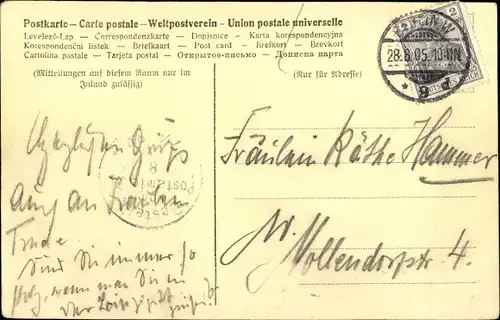 Postkarte – Carte postale – Weltpostverein – Union postale universelle
Levelező-Lap — Correspondenzkarte — Dopisnice — Karta korespondencyjna
Korespondenční lístek — Briefkaart — Post card — Brefkort — Brevkort
Cartolina postale — Tarjeta postal — Открытое-письмо — Дописна карта
(Mitteilungen auf diesem Raum nur im
Inland zulässig)
(Nur für Adresse)
BERLIN W
28.8.05. 10-11N.
* 9 d
2
Herzlichen Gruß
Auch an Fräulein
Trude.
Sind Sie immer so
stolz, wenn man Sie in
Bestellt
Postamt
8
Fräulein Käthe Hammer
W.
Nollendorfstr 4.